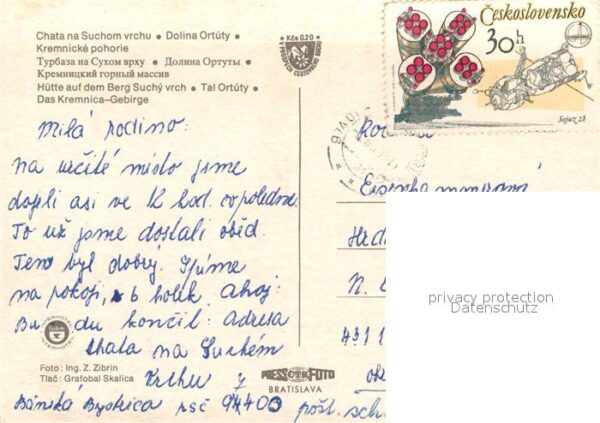 Chata na Suchom vrchu • Dolina Ortúty •
Kremnické pohorie
Турбаза на Сухом врху • Долина Ортуты •
Кремницкий горный массив
Hütte auf dem Berg Suchý vrch • Tal Ortúty •
Das Kremnica-Gebirge
Kčs 0,20
Československo
30 h
Sojuz 28
Milá rodino:
na určité místo jsme
dojeli asi ve 12 hod. odpoledne.
To už jsme dostali oběd.
Ten byl dobrý. Spíme
na pokoji, 6 holek. Ahoj:
Budu končil: adresa
chata na Suchém
Vrchu
Bánská Bystrica psč 97400
pošt. sch.
Hrd
N.
privacy protection
Datenschutz
Foto: Ing. Z. Zibrín
Tlač: Grafobal Skalica
PRESSFOTO
BRATISLAVA